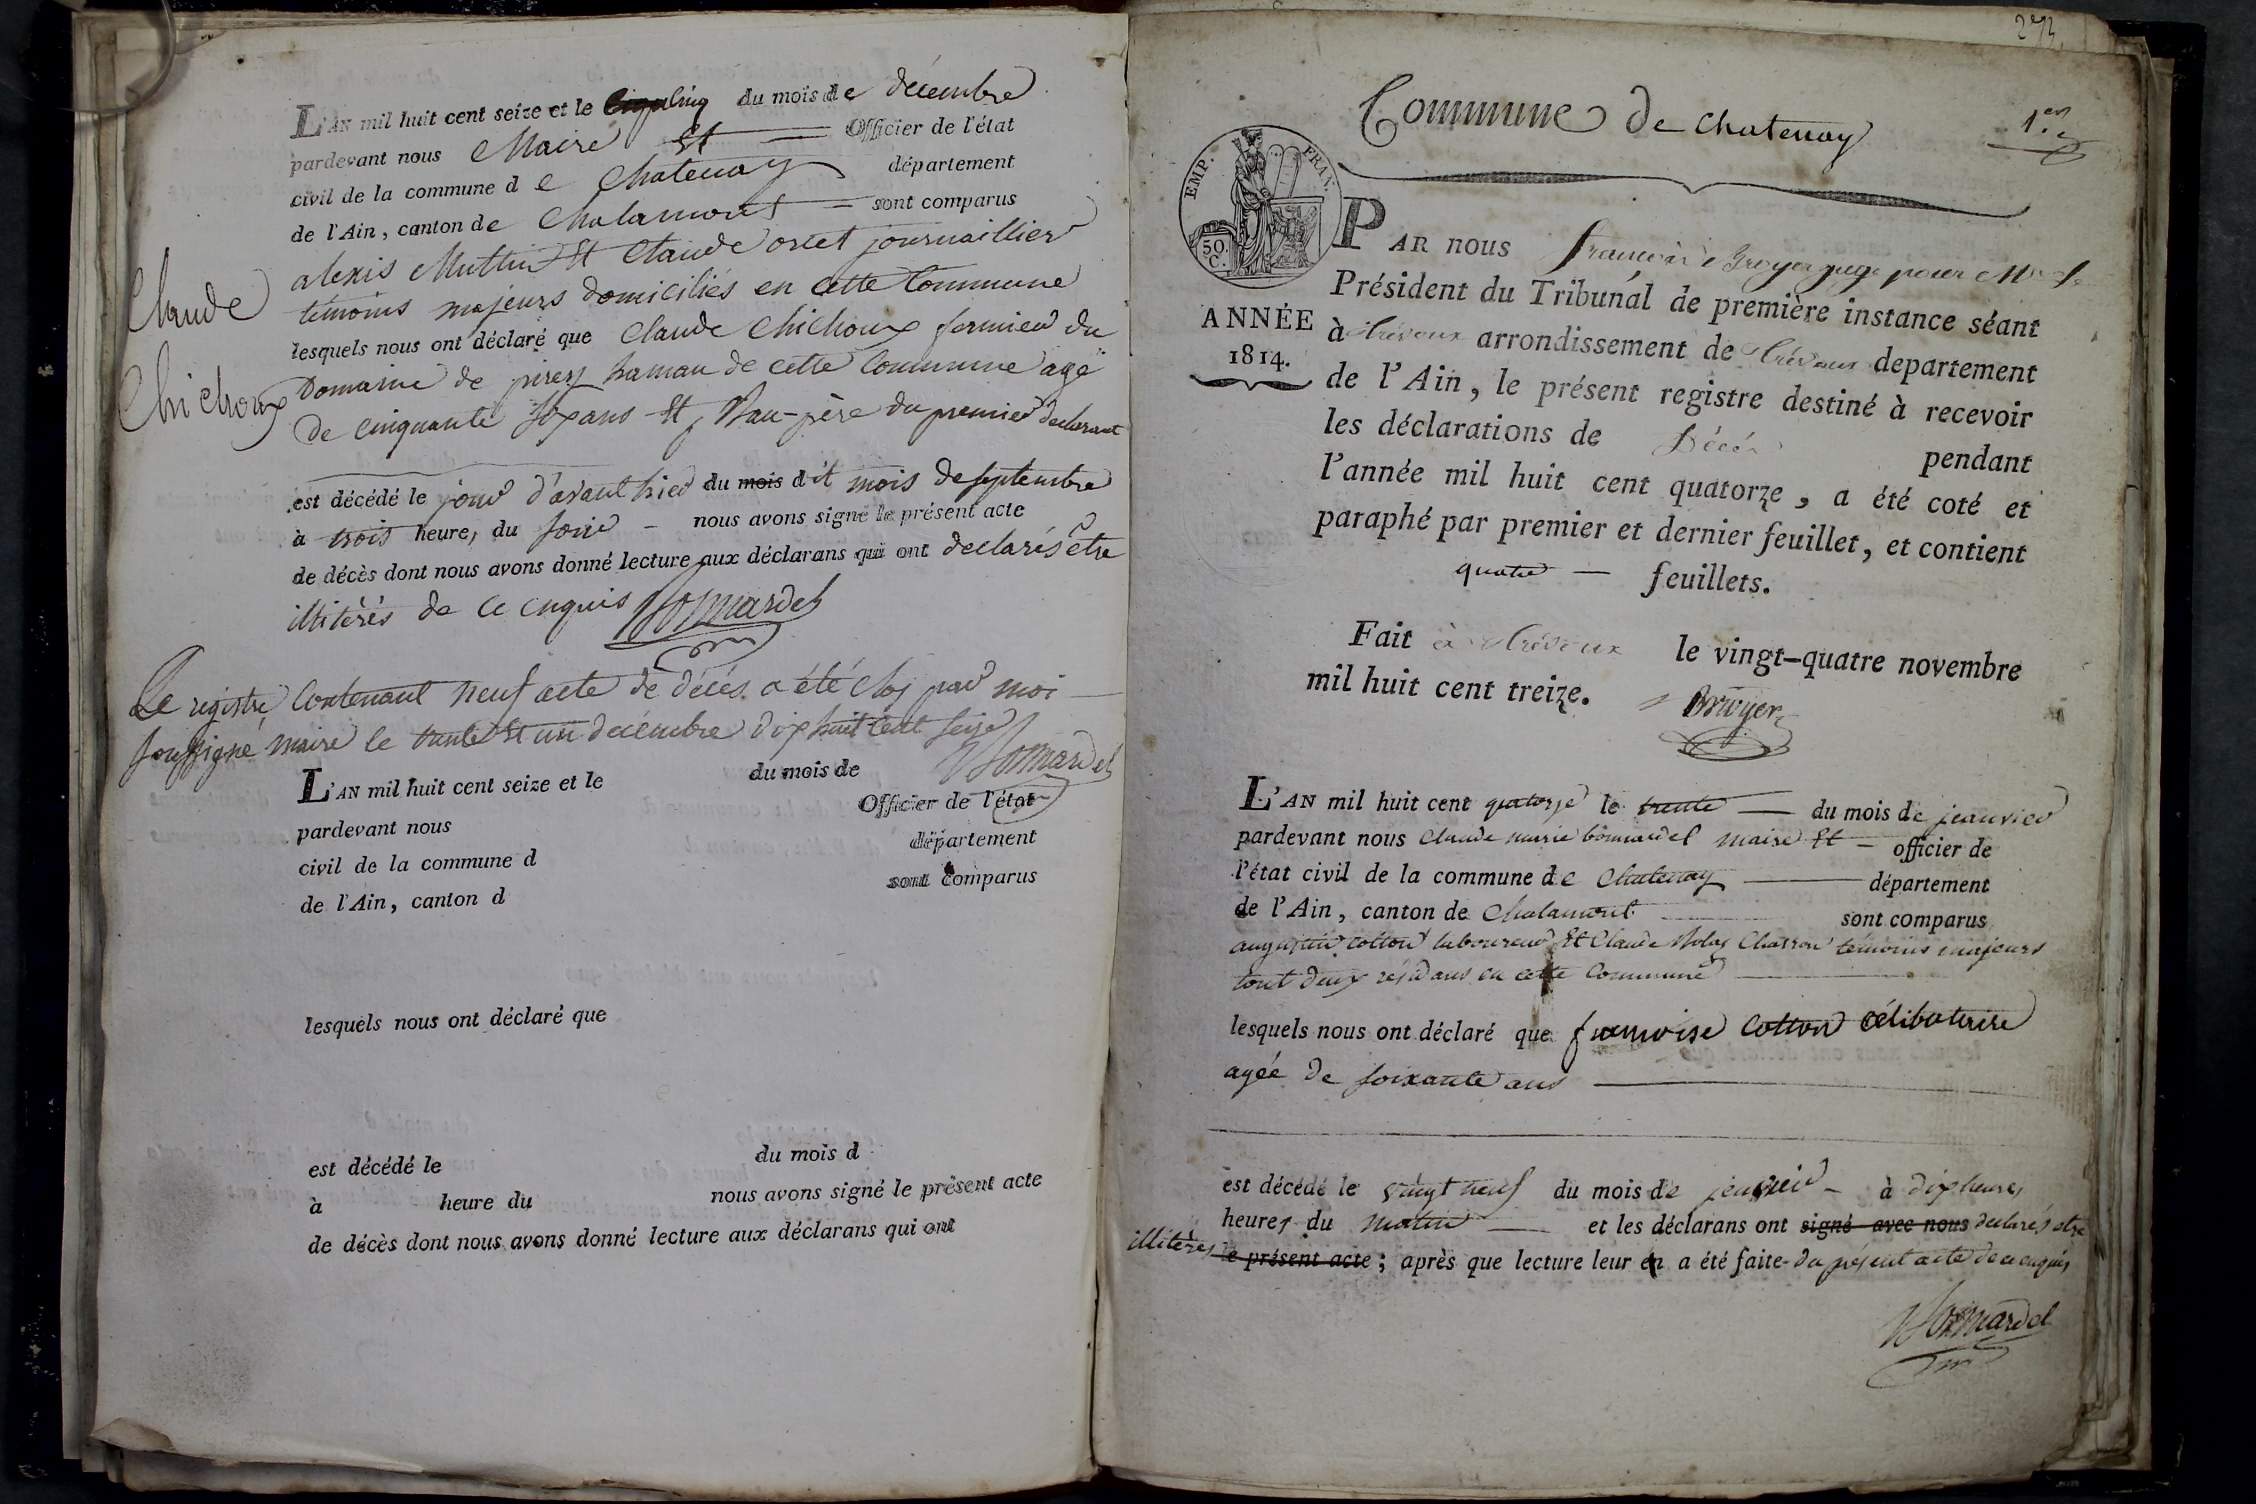 L'AN mil huit cent seize et le cinq du mois de décembre
pardevant nous Maire et Officier de l'état
civil de la commune de Chatenay département
de l'Ain, canton de Chalamont sont comparus
alexis Muttin et Claude orset journaillier
témoins majeurs domiciliés en cette Commune
lesquels nous ont déclaré que Claude Chichoux fermier du
Claude
Chichoux
Domaine de hamau de cette Commune agé
de cinquante six ans et Bau-père du premier declarant
est décédé le jour d'avant hier du mois dit mois de septembre
à trois heure, du soir nous avons signé le présent acte
de décès dont nous avons donné lecture aux déclarans qui ont declarés etre
illitérés de ce enquis Bommardel
Le registre Contenant neuf acte de décés a été clos par moi
soussigné maire le trente et un decembre dix huit cent seize Bommardel
L'AN mil huit cent seize et le du mois de
pardevant nous Officier de l'état
civil de la commune d département
de l'Ain, canton d sont comparus
lesquels nous ont déclaré que
est décédé le du mois d
à heure du nous avons signé le présent acte
de décès dont nous avons donné lecture aux déclarans qui ont
Commune de Chatenay
1.er
EMP. FRAN.
50. C.
ANNÉE
1814.
PAR nous juge pour Mr le
Président du Tribunal de première instance séant
à trévoux arrondissement de trévoux departement
de l'Ain, le présent registre destiné à recevoir
les déclarations de Décés pendant
l'année mil huit cent quatorze, a été coté et
paraphé par premier et dernier feuillet, et contient
quatre feuillets.
Fait à trévoux le vingt-quatre novembre
mil huit cent treize.
L'AN mil huit cent quatorze le trente du mois de jeanvier
pardevant nous Claude marie bommardel maire et officier de
l'état civil de la commune de Chatenay département
de l'Ain, canton de Chalamont sont comparus
augustin cotton laboureur et Claude Charron témoins majeurs
tout deux résidans en cette Commune
lesquels nous ont déclaré que francoise Cotton célibaterire
agée de soixante ans
est décédé le vingt neuf du mois de jeanvier à dix heures
heures du matin et les déclarans ont signé avec nous declarés etre
illitérés le présent acte; après que lecture leur en a été faite du présent acte de ce enquis
Bommardel